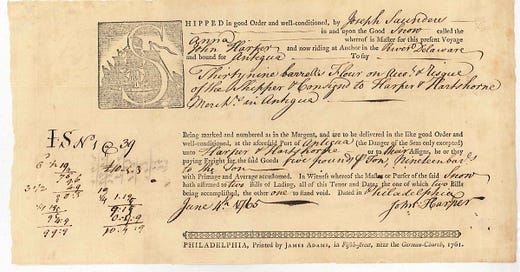 SHIPPED in good Order and well-conditioned, by Joseph Saunders
in and upon the Good Snow called the
Anna whereof is Master for this present Voyage
John Harper and now riding at Anchor in the River Delaware
and bound for Antigua To say
Thirty nine barrells Flour on Acct. & Risque
of the Shipper & Consign'd to Harper & Hartshorne
Merchts. in Antigua
IS No 1 @ 39
Being marked and numbered as in the Margent, and are to be delivered in the like good Order
and well-conditioned, at the aforesaid Port of Antigua (the Danger of the Seas only excepted)
unto Harper & Hartshorne or to their Assigns, he or they
paying Freight for the said Goods five pounds P Ton, Nineteen bar
to the Ton
with Primage and Average accustomed. In Witness whereof the Master or Purser of the said Snow
hath affirmed to two Bills of Lading, all of this Tenor and Date, the one of which two Bills
being accomplished, the other one to stand void. Dated in Philadelphia
June 4th 1765
John Harper
PHILADELPHIA, Printed by JAMES ADAMS, in Fifth-Street, near the German-Church, 1761.